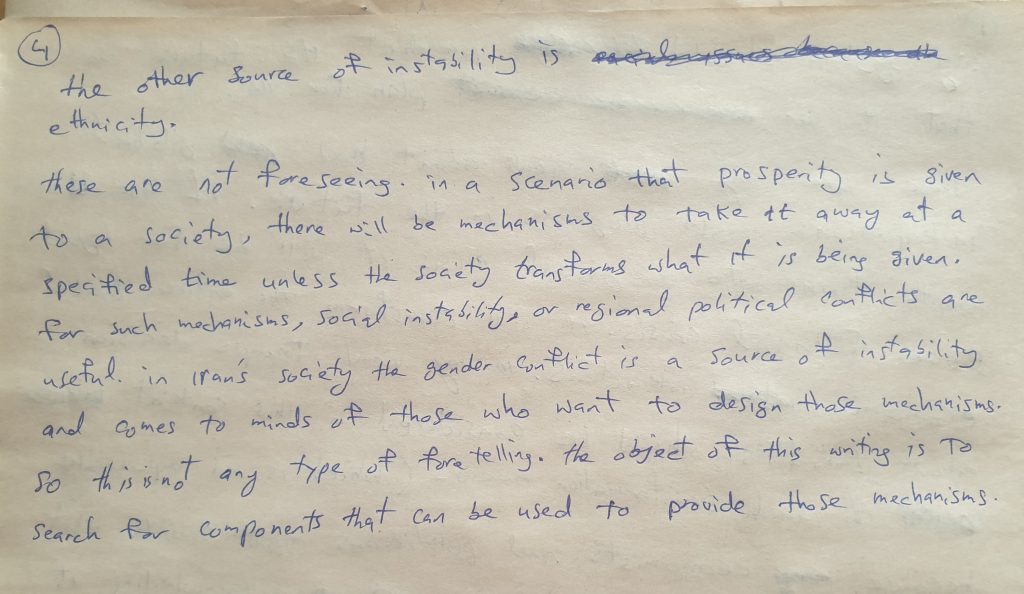 4
the other source of instability is
ethnicity.
these are not foreseeing. in a scenario that prosperity is given
to a society, there will be mechanisms to take it away at a
specified time unless the society transforms what it is being given.
for such mechanisms, social instability, or regional political conflicts are
useful. in Iran's society the gender conflict is a source of instability
and comes to minds of those who want to design those mechanisms.
So this is not any type of foretelling. the object of this writing is To
search for components that can be used to provide those mechanisms.